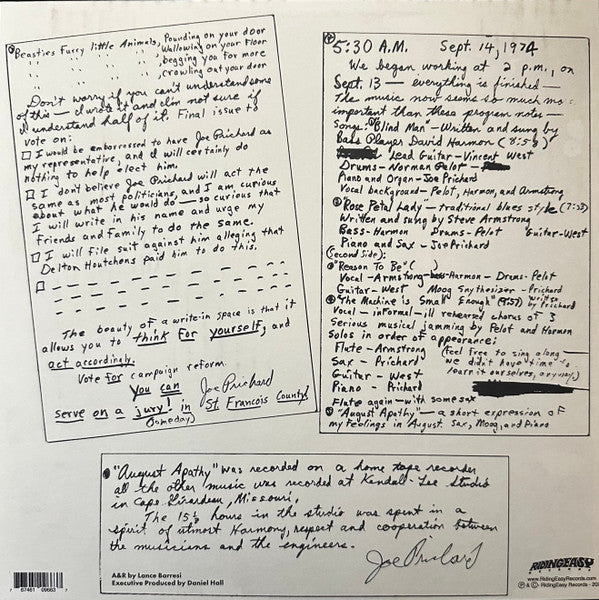 Beasties Furry little Animals, Pounding on your door
" " " " Wallowing on your Floor
" " " " begging you for more
" " " " crawling out your door
Don't worry if you can't understand some
of this — I wrote it and I'm not sure if
I understand half of it. Final issue to
vote on:
□ I would be embarrassed to have Joe Prichard as
my representative, and I will certainly do
nothing to help elect him.
□ I don't believe Joe Prichard will act the
same as most politicians, and I am curious
about what he would do — so curious that
I will write in his name and urge my
Friends and Family to do the same.
□ I will file suit against him alleging that
Delton Houtchens paid him to do this.
□
The beauty of a write-in space is that it
allows you to think for yourself, and
act accordingly.
Vote for campaign reform
you can
serve on a jury! in
(someday)
Joe Prichard
St. Francois County
5:30 A.M. Sept. 14, 1974
We began working at 2 p.m., on
Sept. 13 — everything is finished —
The music now seems so much more
important than these program notes —
Songs: "Blind Man" — Written and sung by
Bass Player David Harmon (8:58)
Lead Guitar - Vincent West
Drums - Norman Pelot -
Piano and Organ - Joe Prichard
Vocal background - Pelot, Harmon, and Armstrong
"Rose Petal Lady — traditional blues style (7:33)
Written and sung by Steve Armstrong
Bass - Harmon Drums - Pelot Guitar - West
Piano and Sax - Joe Prichard
(second side):
"Reason To Be" ( )
Vocal - Armstrong - bass - Harmon - Drums - Pelot
Guitar - West Moog Snythesizer - Prichard
"The Machine is Small Enough" (9:57) written by Prichard
Vocal — informal — ill rehearsed chorus of 3
Serious musical jamming by Pelot and Harmon
Solos in order of appearance:
Flute - Armstrong (feel free to sing along —
Sax - Prichard we didn't have time to
Guitar - West learn it ourselves, anyway)
Piano - Prichard
Flute again - with some sax
"August Apathy" — a short expression of
my feelings in August. Sax, Moog, and Piano
"August Apathy" was recorded on a home tape recorder
all the other music was recorded at Kendall-Lee Studio
in Cape Girardeau, Missouri.
The 15½ hours in the studio was spent in a
spirit of utmost Harmony, respect and cooperation between
the musicians and the engineers.
Joe Prichard
A&R by Lance Barresi
Executive Produced by Daniel Hall
7 67461 09663 7
RIDINGEASY
RECORDS
www.RidingEasyRecords.com
℗ & © - RidingEasy Records - 20